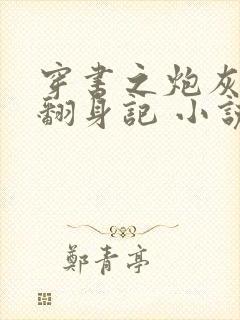 穿书之炮灰
翻身記 小説
鄭青亭